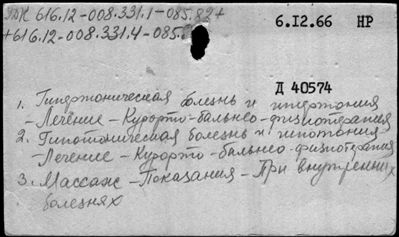 УДК 616.12-008.331.1-085.82+
+616.12-008.331.4-085.
6.I2.66 НР
Д 40574
1. Гипертоническая болезнь и гипертония
- Лечение - Курорто-бальнео-физиотерапия
2. Гипотоническая болезнь и гипотония
- Лечение - Курорто-бальнео-физиотерапия
3. Массаж - Показания - При внутренних
болезнях